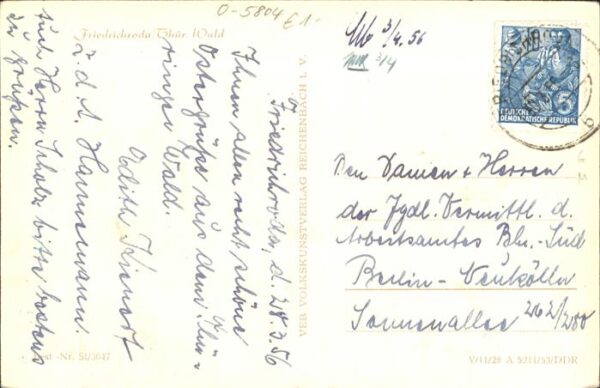 O-5804 E1-
Friedrichroda Thür. Wald
3/4. 56
3/4
DEUTSCHE
DEMOKRATISCHE REPUBLIK
Friedrichroda, d. 28.3.56
Ihnen allen recht schöne
Ostergrüße aus dem Thü-
ringer Wald.
Edith
z. d. A. Hannemann.
auch Herrn Scholz bitte bestens
zu grüßen.
VEB VOLKSKUNSTVERLAG REICHENBACH I. V.
Den Damen + Herren
der Jgdl. Vermittl. d.
Arbeitsamtes Bln.-Süd
Berlin-Neukölln
Sonnenallee 262/280
Best.-Nr. 51/3047
V/11/28 A 5211/53/DDR